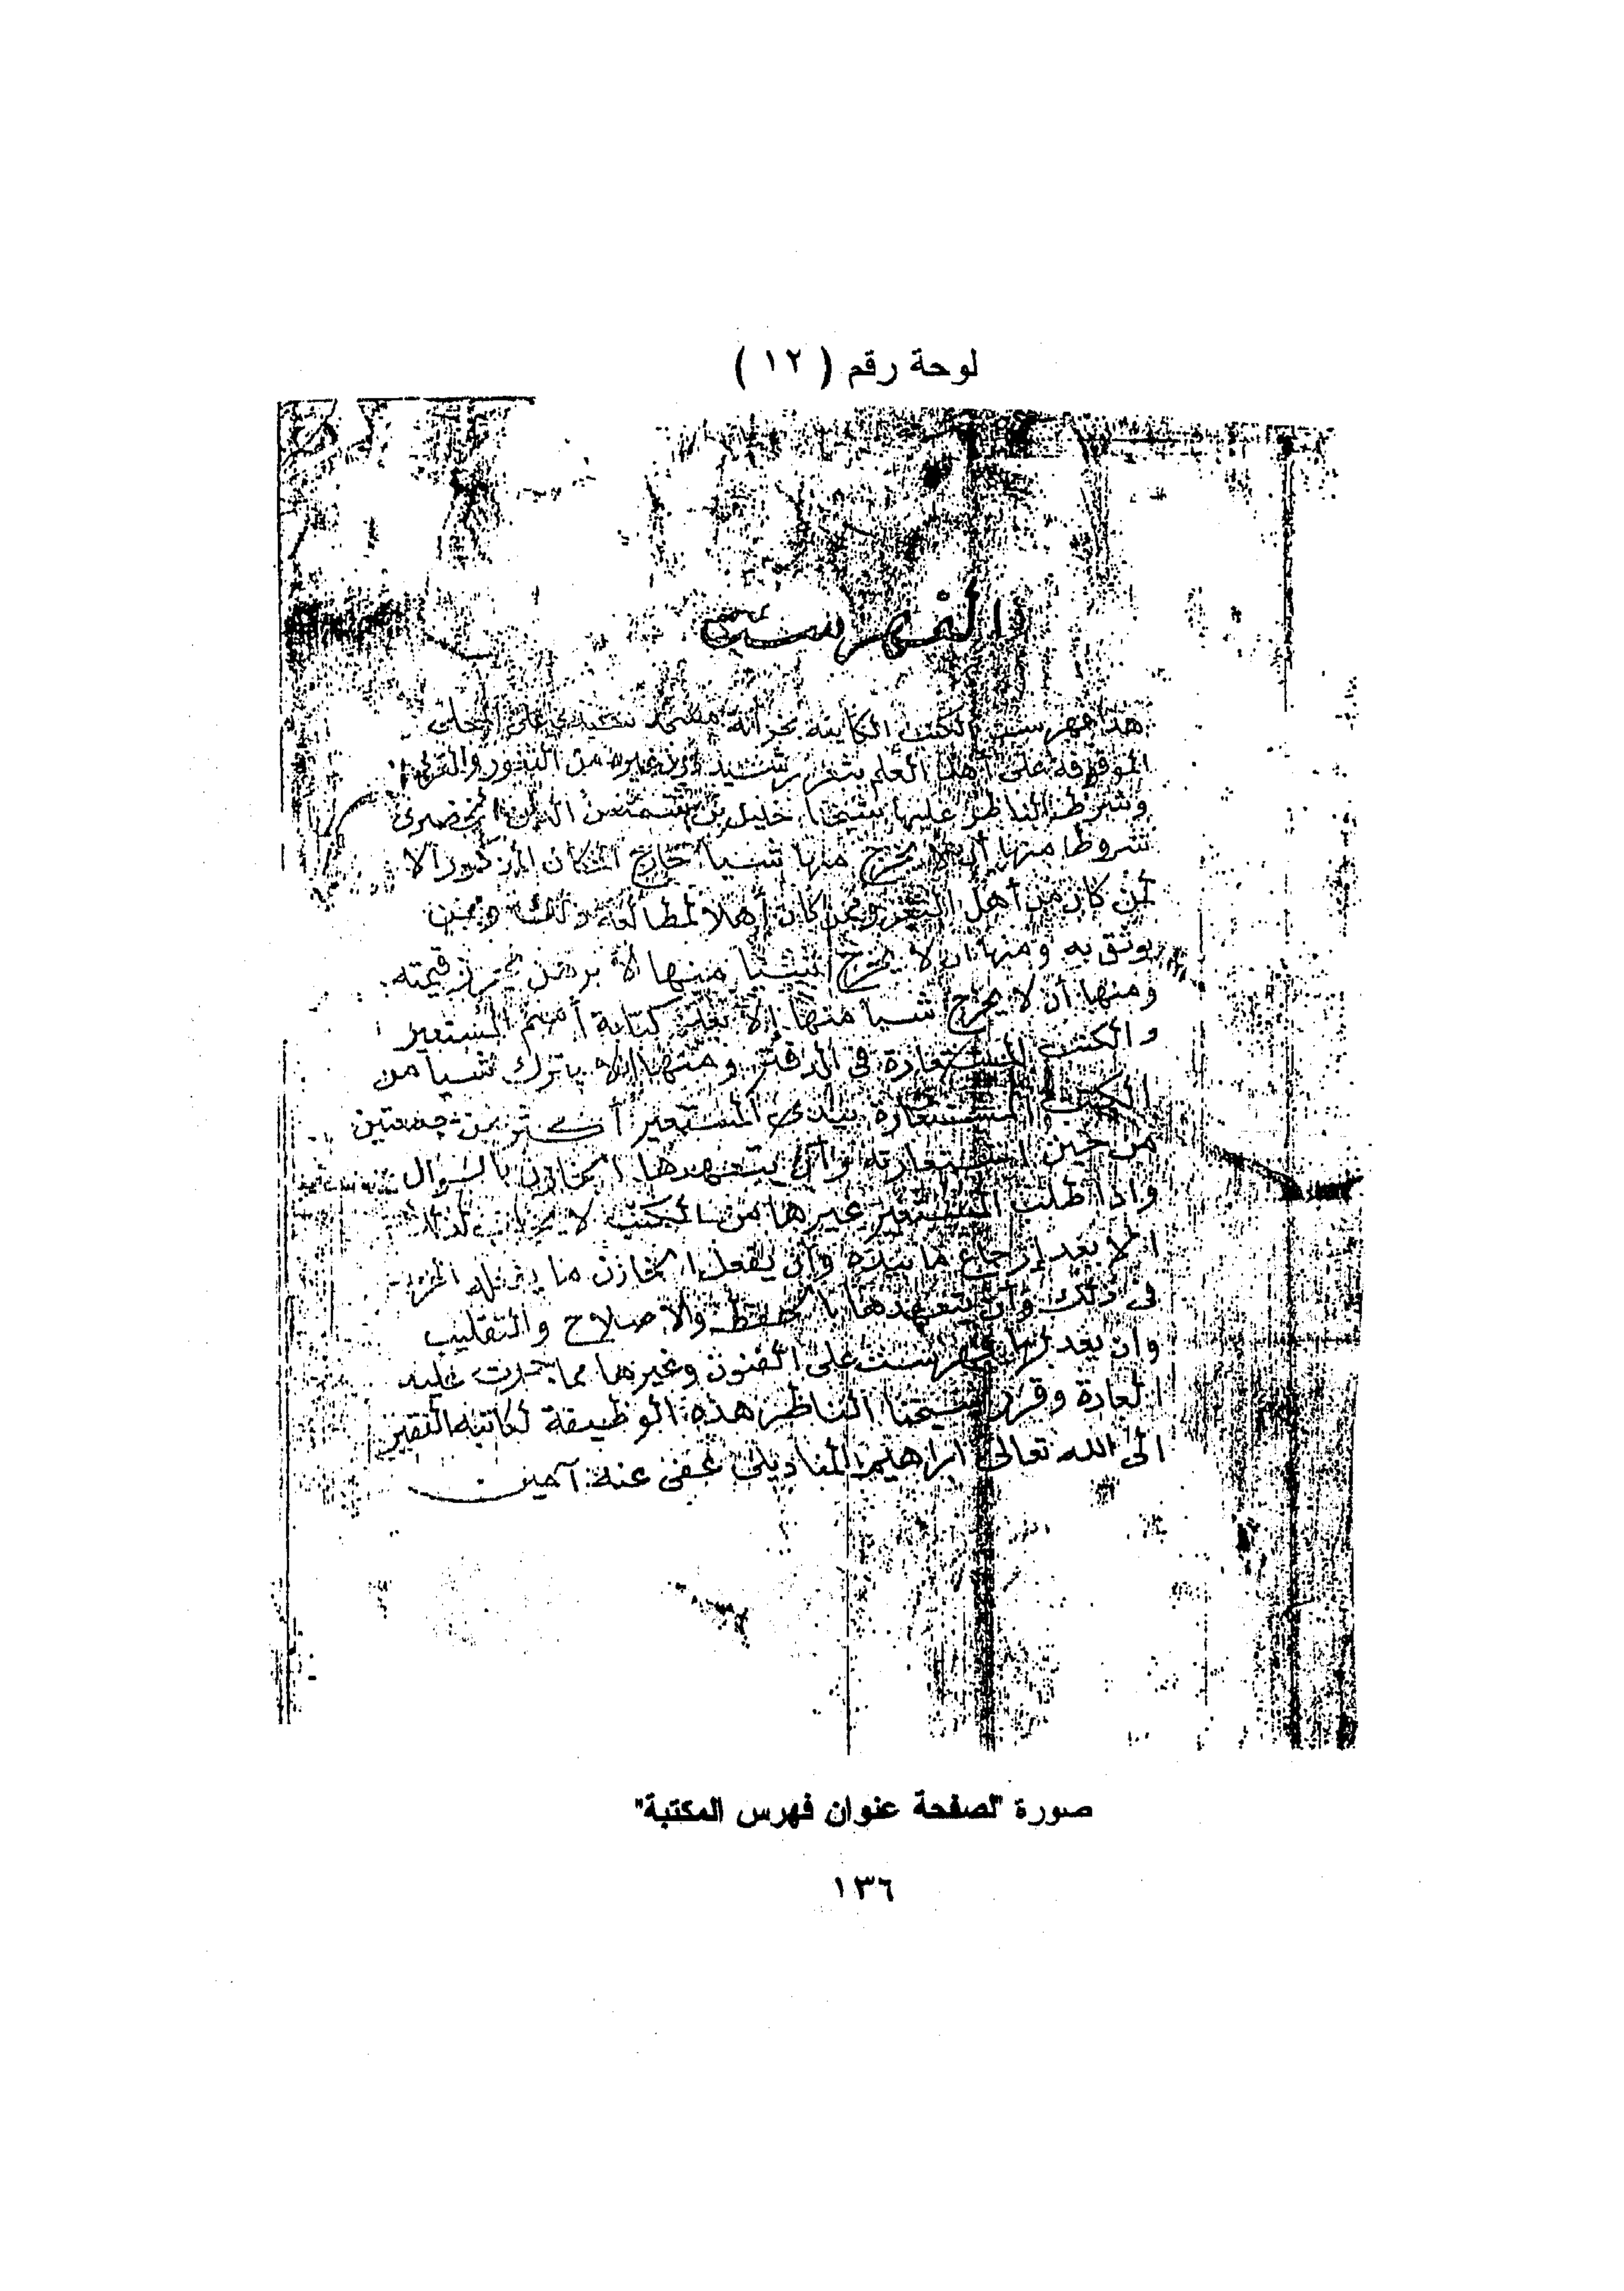 لوحة رقم ( ١٢ )
الفهرست
هذا فهرست الكتب الكاينة بخزانة مسجد سيدي على المحلى
الموقوفة على أهل العلم بثغر رشيد دون غيره من الثغور والقرى
وشرط الناظر عليها شيخنا خليل بن شمس الدين الخضرى
شروطا منها أن لا يخرج منها شيأ خارج المكان المذكور الا
لمن كان من أهل الثغر وممن كان أهلا لمطالعة ذلك وممن
يوثق به ومنها ان لا يخرج شيئا منها الا برهن يحرز قيمته
ومنها أن لا يخرج شيا منها إلا بعد كتابة أسم المستعير
والكتب المستعارة فى الدفتر ومنها الا يترك شيأ من
الكتب المستعارة بيدى المستعير أكثر من جمعتين
من حين استعارته وأن يتعهدها الخازن بالسوال
واذا طلب المستعير غيرها من الكتب لا يجاب لذلك
الا بعد إرجاع ما بيده وأن يفعل الخازن ما يفعله
فى ذلك وأن يتعهدها بالحفظ والاصلاح والتقليب
وان يعد لها فهرست على الفنون وغيرها مما جرت عليه
العادة وقرر شيخنا الناظر هذه الوظيفة لكاتبه الفقير
الى الله تعالى ابراهيم المناديلى عفى عنه آمين
صورة "لصفحة عنوان فهرس المكتبة"
١٣٦